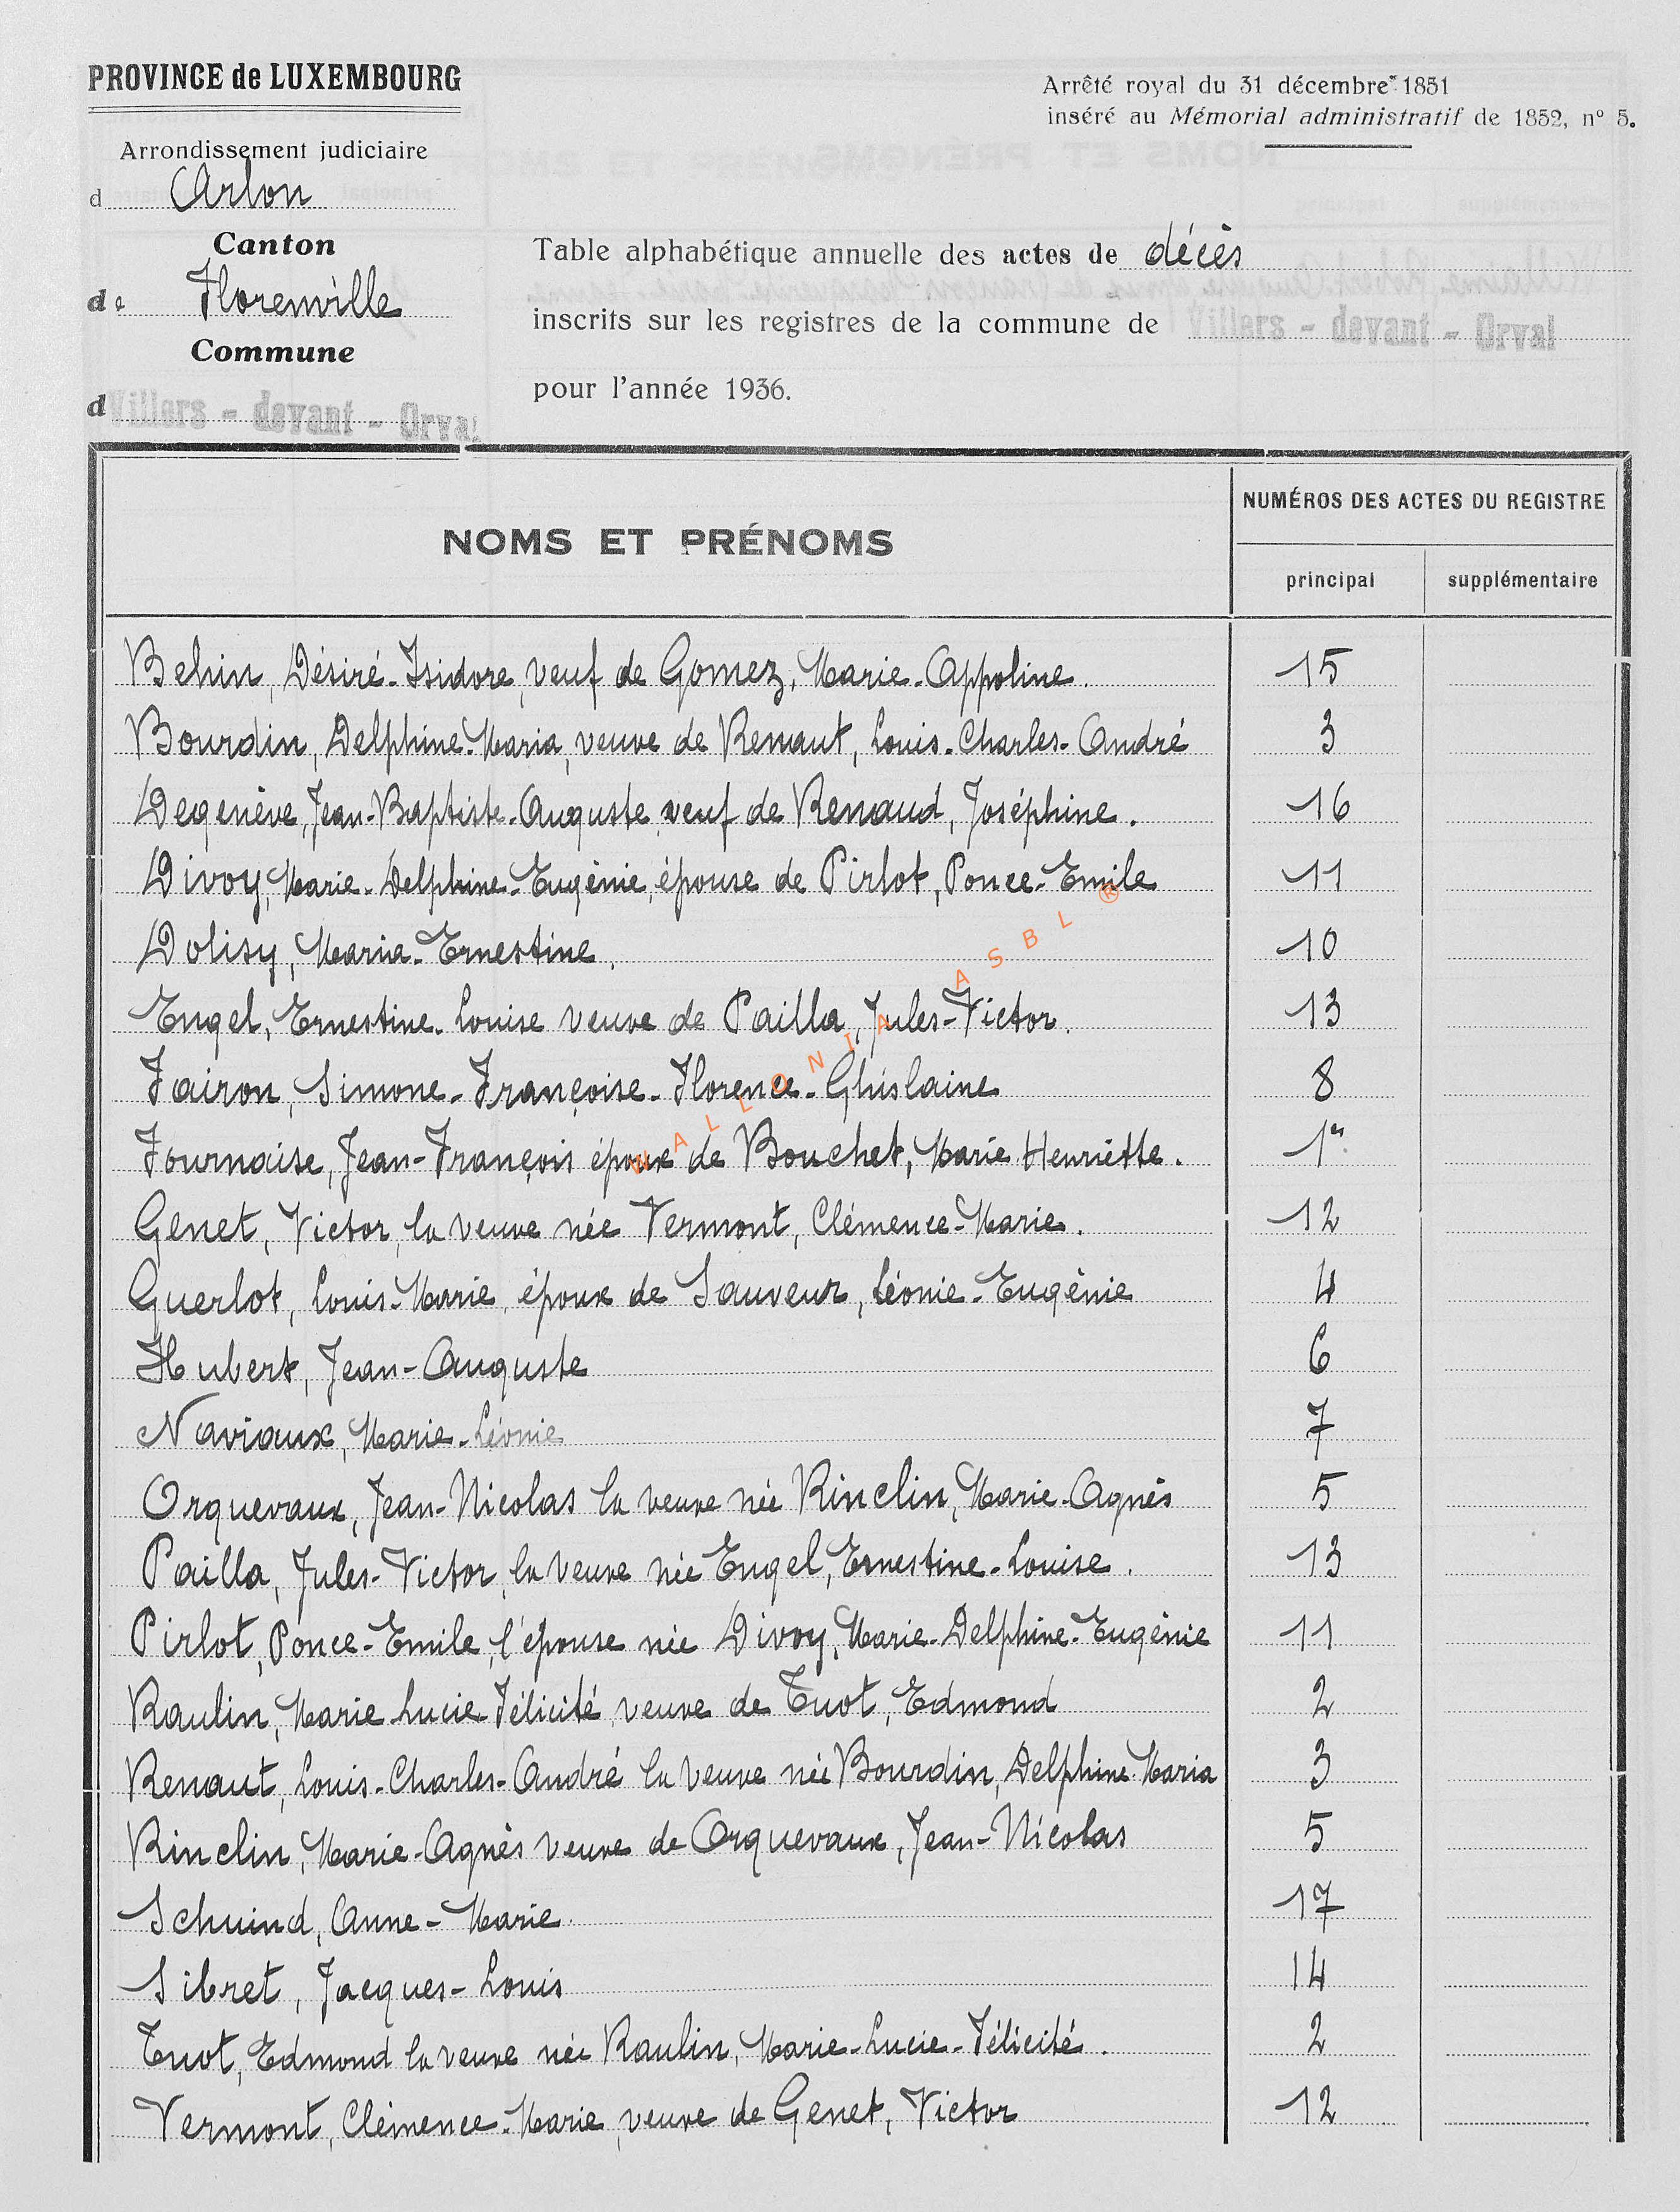 PROVINCE de LUXEMBOURG
Arrêté royal du 31 décembre 1851
inséré au Mémorial administratif de 1852, nº 5.
Arrondissement judiciaire
d Arlon
Canton
de Florenville
Commune
d Villers - devant - Orval
Table alphabétique annuelle des actes de décès
inscrits sur les registres de la commune de Villers - devant - Orval
pour l'année 1936.
NOMS ET PRÉNOMS
NUMÉROS DES ACTES DU REGISTRE
principal supplémentaire
Behin, Désiré-Isidore, veuf de Gomez, Marie-Appoline. 15
Bourdin, Delphine-Maria, veuve de Renaut, Louis-Charles-André 3
Degenève, Jean-Baptiste-Auguste, veuf de Renaud, Joséphine. 16
Divoy, Marie-Delphine-Eugènie, épouse de Pirlot, Ponce-Emile 11
Dolisy, Maria-Ernestine. 10
Engel, Ernestine-Louise veuve de Pailla, Jules-Victor. 13
Fairon, Simone-Françoise-Florence-Ghislaine 8
Fournaise, Jean-François époux de Bouchet, Marie Henriette. 1er
Genet, Victor, la veuve née Vermont, Clémence-Marie. 12
Guerlot, Louis-Marie, époux de Sauveur, Léonie-Eugènie 4
Hubert, Jean-Auguste 6
Naviaux, Marie-Léonie 7
Orquevaux, Jean-Nicolas la veuve née Rinclin, Marie-Agnès 5
Pailla, Jules-Victor, la veuve née Engel, Ernestine-Louise. 13
Pirlot, Ponce-Emile, l'épouse née Divoy, Marie-Delphine-Eugènie 11
Raulin, Marie Lucie-Félicité, veuve de Tuot, Edmond 2
Renaut, Louis-Charles-André la veuve née Bourdin, Delphine-Maria 3
Rinclin, Marie-Agnès veuve de Orquevaux, Jean-Nicolas 5
Schuind, Anne-Marie. 17
Sibret, Jacques-Louis 14
Tuot, Edmond la veuve née Raulin, Marie-Lucie-Félicité. 2
Vermont, Clémence-Marie, veuve de Genet, Victor 12
WALLONIA ASBL ®